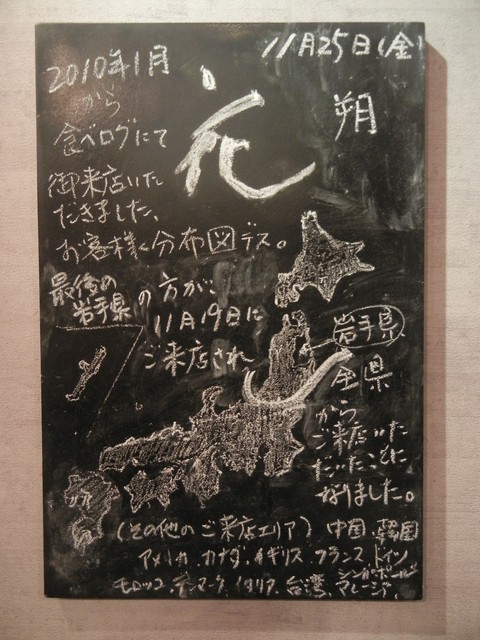 11月25日(金)
朔
花
2010年1月
から
食べログにて
御来店いた
だきました、
お客様の分布図デス。
最後の
岩手県の方が、
11月19日に
ご来店され、
岩手県
全県
から
ご来店いた
だいたことに
なりました。
(その他のご来店エリア) 中国 韓国
アメリカ.カナダ.イギリス.フランス.ドイツ
モロッコ.デンマーク.イタリア.台湾.シンガポール
マレーシア.